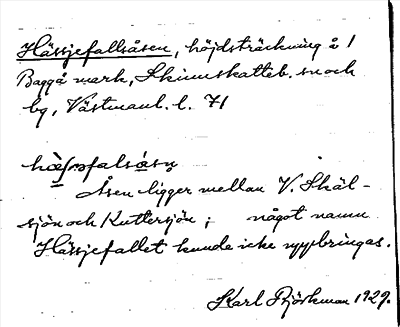 Hässjefallsåsen, höjdsträckning å 1
Bagga mark, Skinnskatteb. sn och
bg, Västmanl. l. 71
hæ̀ʃəfalsåsn̥
Åsen ligger mellan V. Skäl-
sjön och Kuttersjön; något namn
Hässjefallet kunde icke uppbringas.
Karl Björkman 1929.